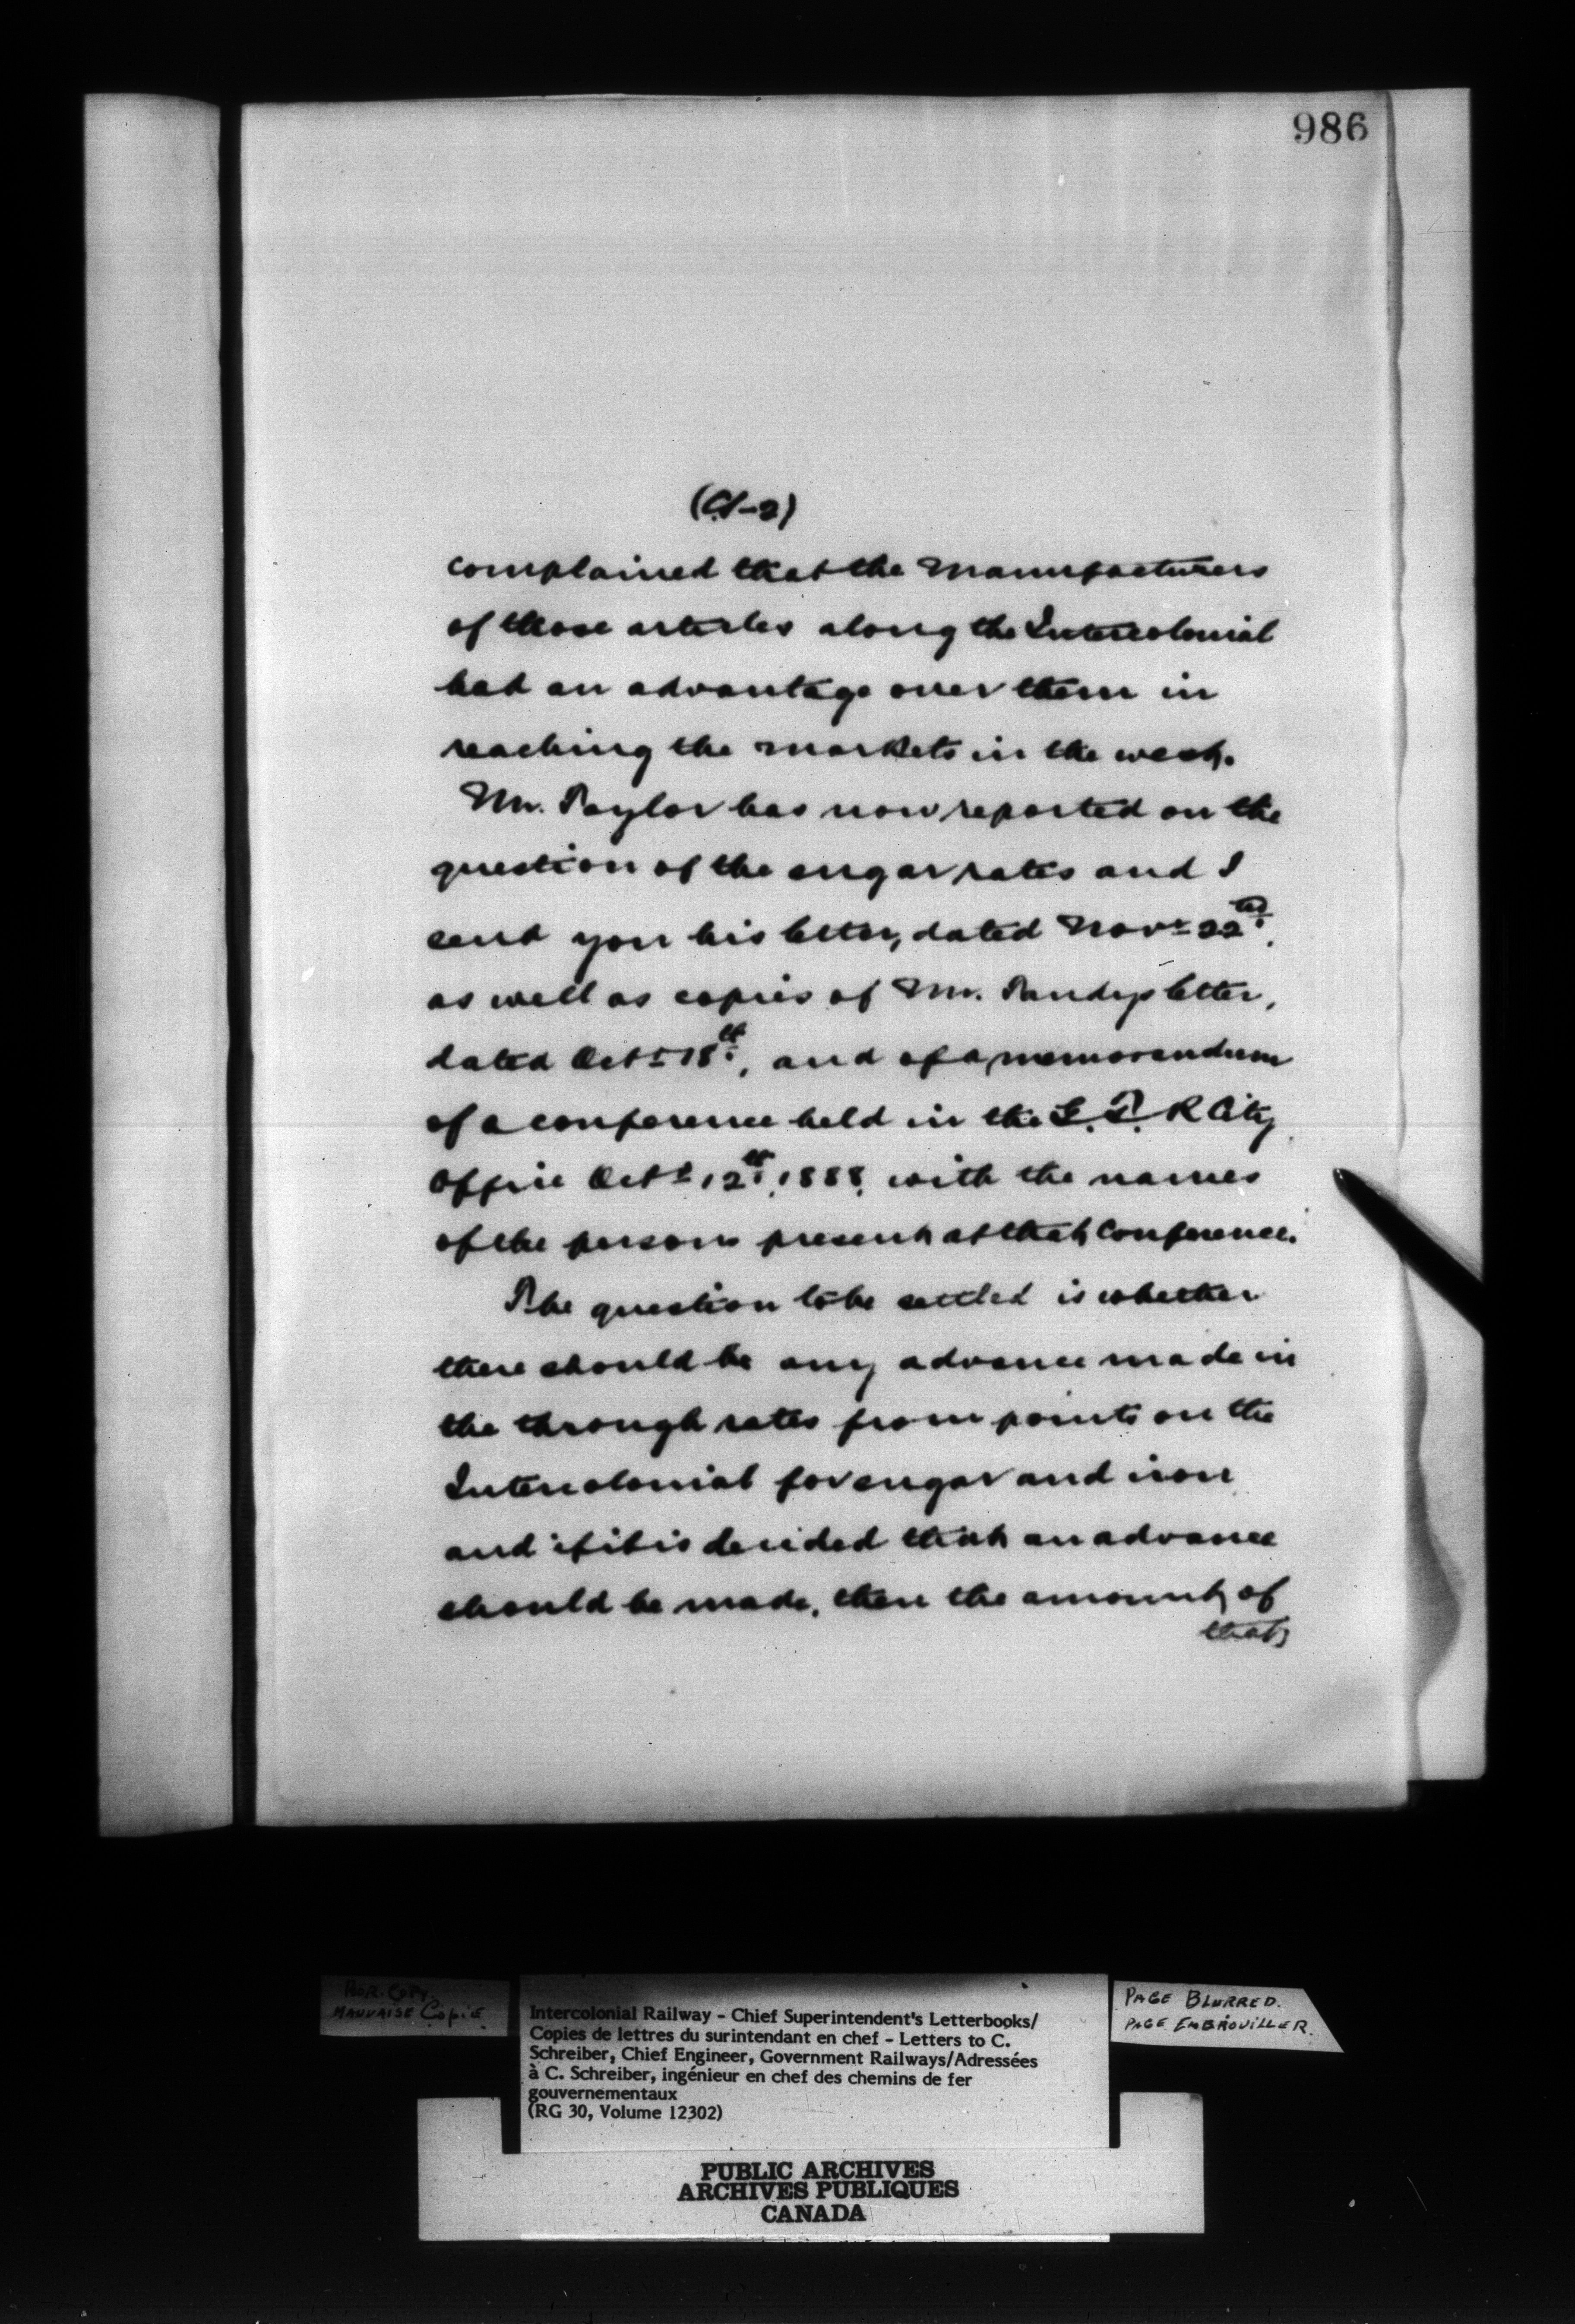 986
complained that the Manufacturers
of those articles along the Intercolonial
had an advantage over them in
reaching the markets in the west.
Mr. Taylor has now reported on the
question of the sugar rates and I
send you his letter, dated Novr 22nd.
as well as copies of Mr. letter,
dated Octr 18th, and of a memorandum
of a conference held in the G. T. R City
Office Octr 12th, 1888, with the names
of the persons present at that Conference.
The question to be settled is whether
there should be any advance made in
the through rates from points on the
Intercolonial for sugar and iron
and if it is decided that an advance
should be made, then the amount of
that
POOR COPY.
MAUVAISE COPIE
Intercolonial Railway - Chief Superintendent's Letterbooks/
Copies de lettres du surintendant en chef - Letters to C.
Schreiber, Chief Engineer, Government Railways/Adressées
à C. Schreiber, ingénieur en chef des chemins de fer
gouvernementaux
(RG 30, Volume 12302)
PAGE BLURRED.
PAGE EMBROUILLER.
PUBLIC ARCHIVES
ARCHIVES PUBLIQUES
CANADA